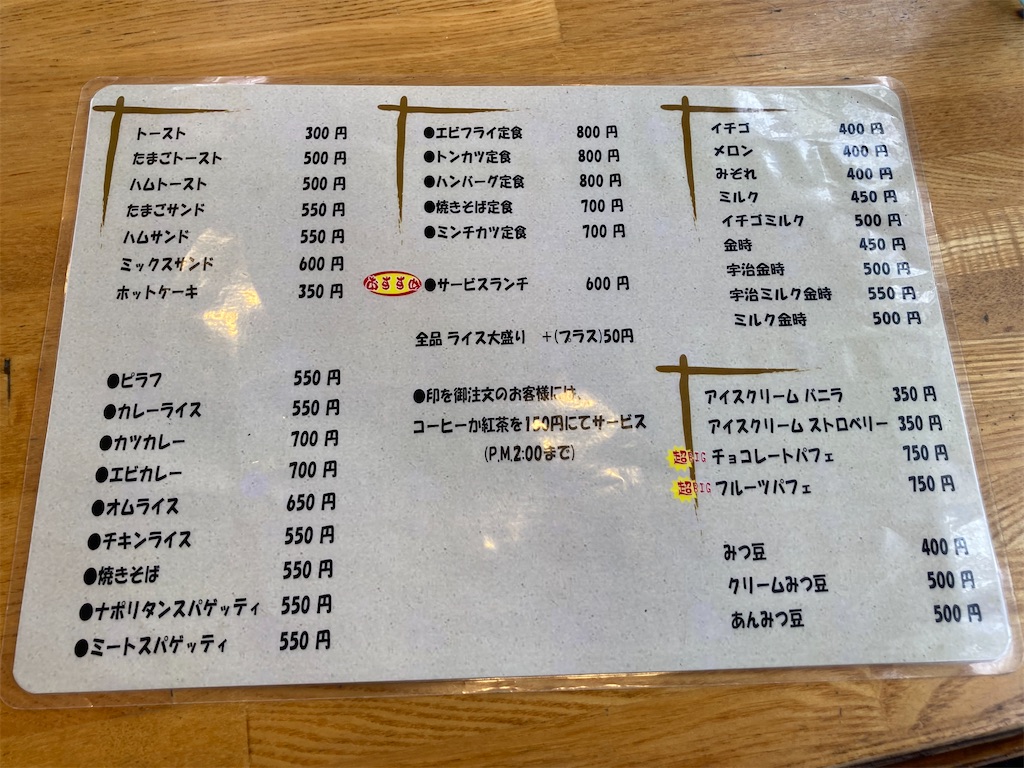 トースト 300円
たまごトースト 500円
ハムトースト 500円
たまごサンド 550円
ハムサンド 550円
ミックスサンド 600円
ホットケーキ 350円
●ピラフ 550円
●カレーライス 550円
●カツカレー 700円
●エビカレー 700円
●オムライス 650円
●チキンライス 550円
●焼きそば 550円
●ナポリタンスパゲッティ 550円
●ミートスパゲッティ 550円
●エビフライ定食 800円
●トンカツ定食 800円
●ハンバーグ定食 800円
●焼きそば定食 700円
●ミンチカツ定食 700円
おすすめ ●サービスランチ 600円
全品 ライス大盛り +(プラス)50円
●印を御注文のお客様には、
コーヒーか紅茶を150円にてサービス
(P.M.2:00まで)
イチゴ 400円
メロン 400円
みぞれ 400円
ミルク 450円
イチゴミルク 500円
金時 450円
宇治金時 500円
宇治ミルク金時 550円
ミルク金時 500円
アイスクリーム バニラ 350円
アイスクリーム ストロベリー 350円
超BIG チョコレートパフェ 750円
超BIG フルーツパフェ 750円
みつ豆 400円
クリームみつ豆 500円
あんみつ豆 500円